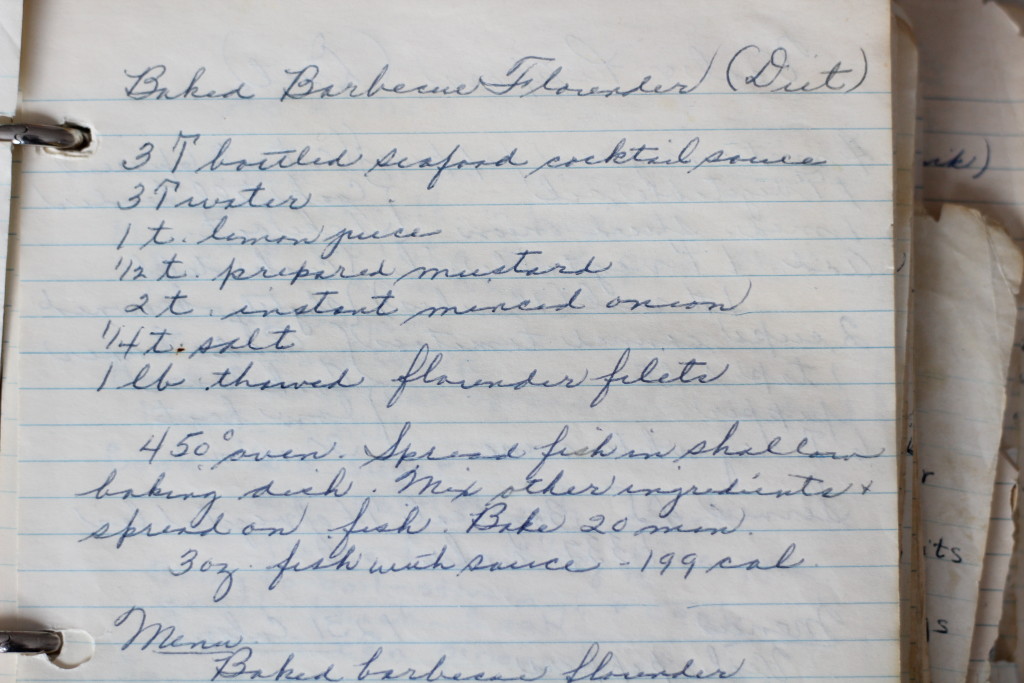 Baked Barbecue Flounder (Diet)
3 T bottled seafood cocktail sauce
3 T water
1 t. lemon juice
1/2 t. prepared mustard
2 t. instant minced onion
1/4 t. salt
1 lb thawed flounder filets
450° oven. Spread fish in shallow
baking dish. Mix other ingredients +
spread on fish. Bake 20 min.
3 oz. fish with sauce - 199 cal.
Menu
Baked barbecue flounder
its